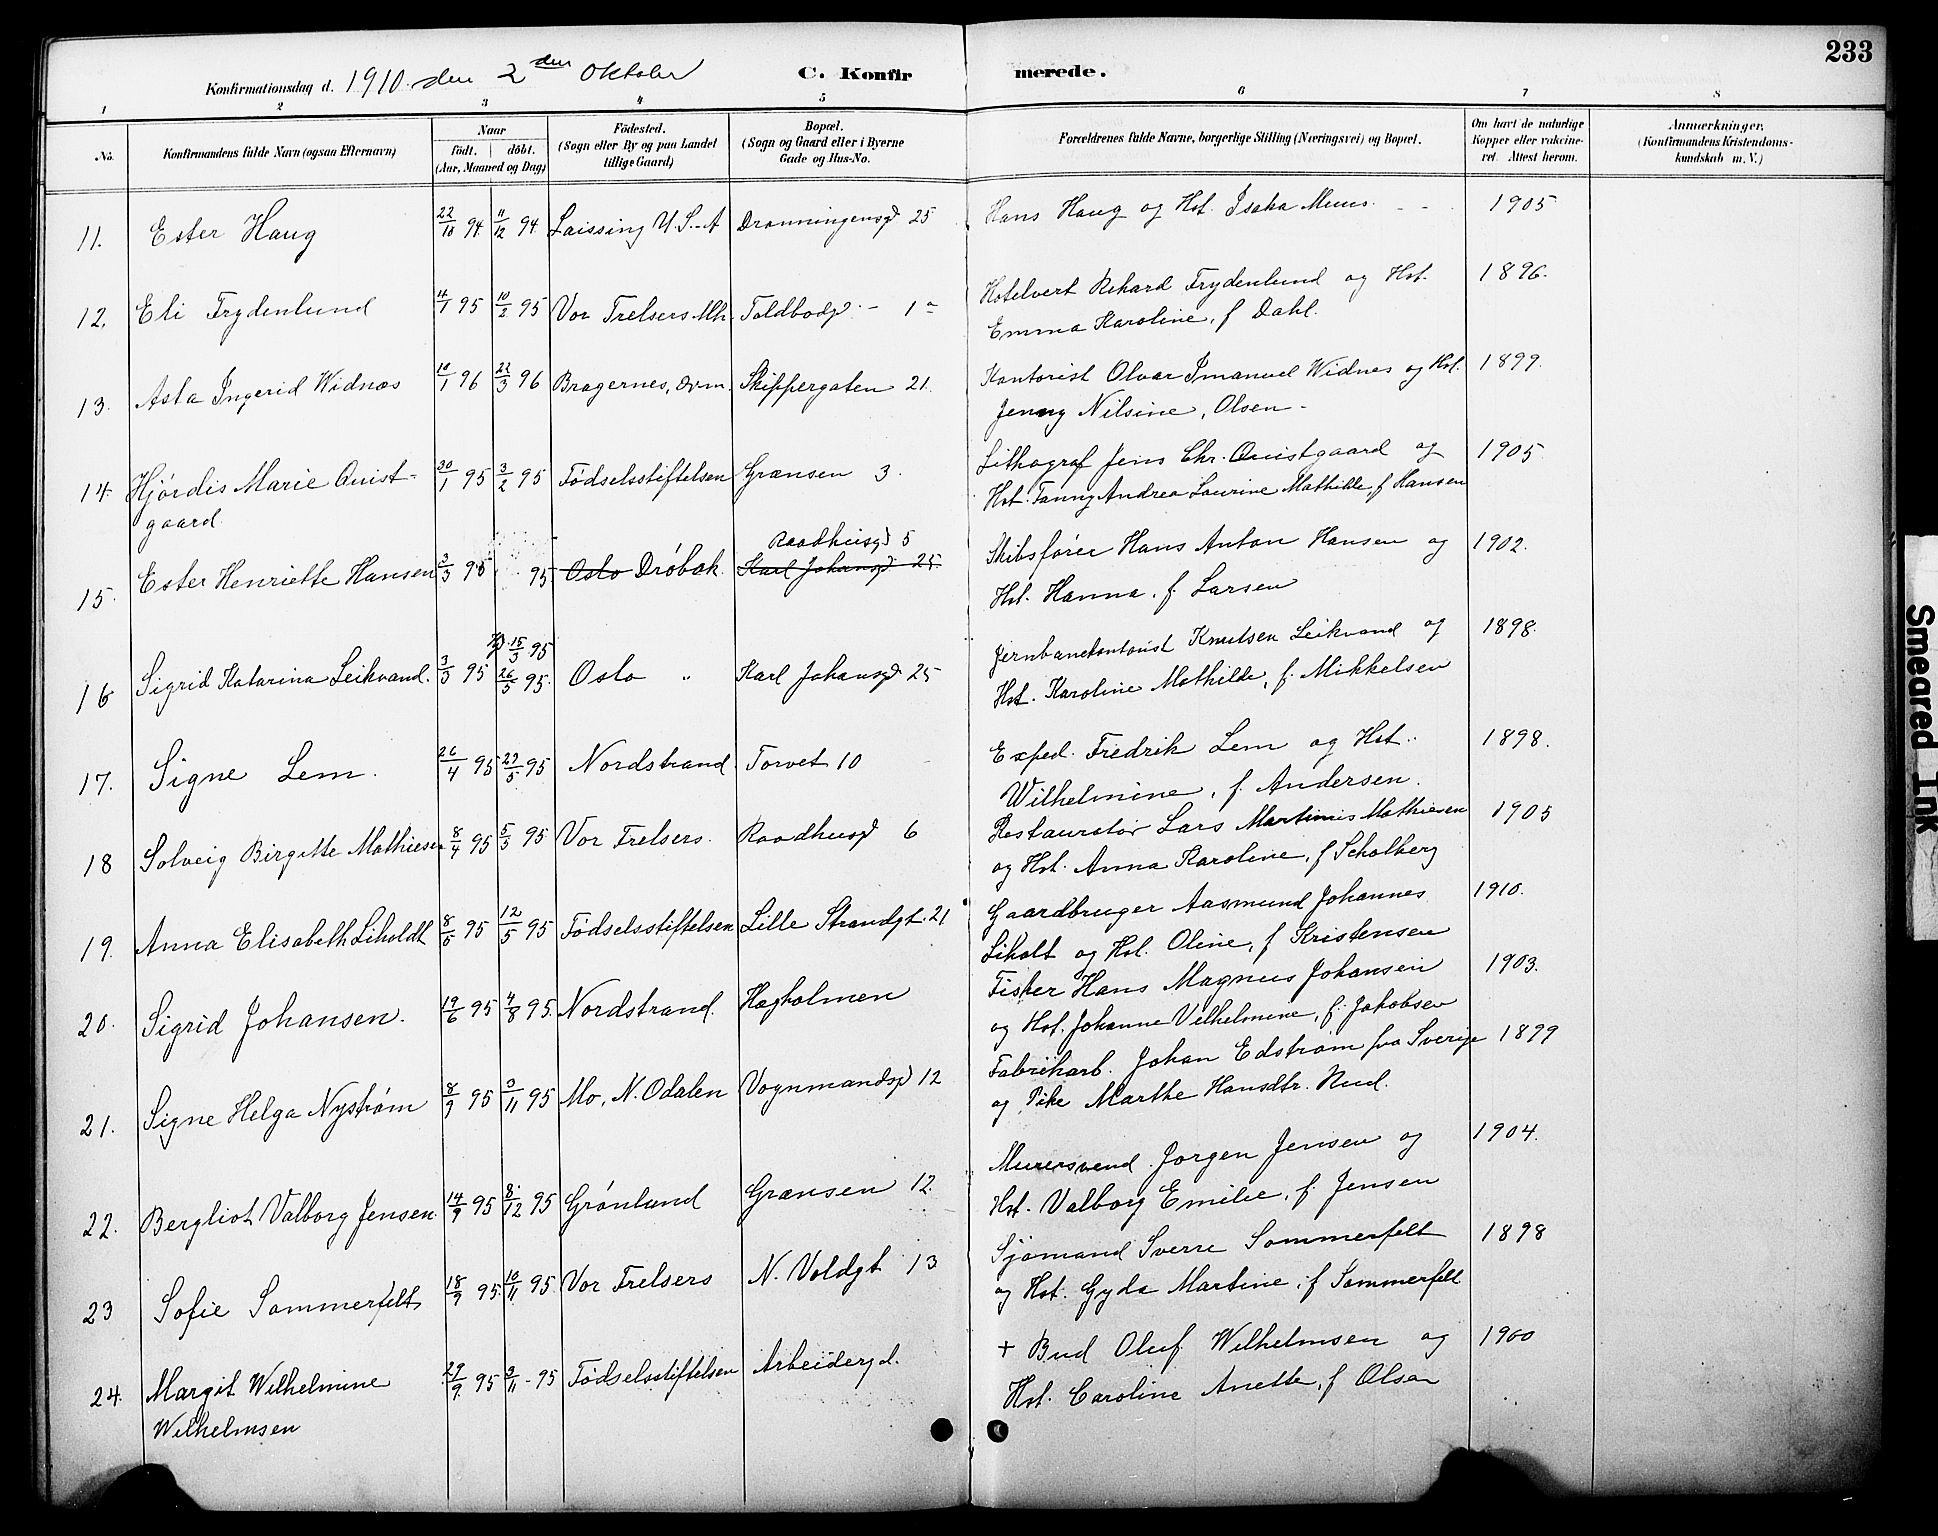 233
Konfirmationsdag d. 1910 den 2den Oktober C. Konfirmerede.
1 2 3 4 5 6 7 8
No. Konfirmandens fulde Navn (ogsaa Efternavn) Naar født. døbt. (Aar, Maaned og Dag) Fødested. (Sogn eller By og paa Landet tillige Gaard) Bopæl. (Sogn og Gaard eller i Byerne Gade og Hus-No. Forældrenes fulde Navne, borgerlige Stilling (Næringsvei) og Bopæl. Om havt de naturlige Kopper eller vaccineret. Attest herom. Anmærkninger. (Konfirmandens Kristendomskundskab m. V.)
11. Ester Haug 22/10 94 11/12 94 Laissing U.S.-A Dronningensgd 25 Hans Haug og Hst. Isaka 1905
12. Eli Frydenlund 11/1 95 10/2 95 Vor Frelsers Mh. Toldbodgd. - 1 Hotelvert Rikard Frydenlund og Hst. 1896.
Emma Karoline, f Dahl.
13. Asta Ingerid Widnæs 10/1 96 22/3 96 Bragernes, Drm. Skippergaten 21. Kontorist Olvar Imanuel Widnes og Hst. 1899.
Jenny Nilsine, Olsen -
14. Hjørdis Marie Quist- 30/1 95 3/2 95 Fødselsstiftelsen Grænsen 3. Lithograf Jens Chr. Quistgaard og 1905
gaard Hst. Fanny Andrea Laurine Mathilde, f Hansen
Raadhusgd 5
15. Ester Henriette Hansen 3/3 95 95 Oslo Drøbak Karl Johansgd 25. Skibsfører Hans Anton Hansen og 1902.
Hst. Hanna. f. Larsen
15/3 95
16 Sigrid Katarina Leikvand. 3/3 95 26/5 95. Oslo " Karl Johansgd 25 Jernbanekontorist Knutsen Leikvand og 1898.
Hst. Karoline Mathilde, f. Mikkelsen
17. Signe Lem. 26/4 95 29/5 95 Nordstrand Torvet 10 Exped. Fredrik Lem og Hst. 1898.
Wilhelmine, f. Andersen.
18 Solveig Birgitte Mathiesen 8/4 95 5/5 95 Vor Frelsers. Raadhusgd 6 Restauratør Lars Martinius Mathiesen 1905
og Hst. Anna Karoline, f Scholberg
19. Anna Elisabeth Liholdt 8/5 95 12/5 95 Fødselsstiftelsen Lille Strandgt. 21 Gaardbruger Aasmund Johannes 1910.
Liholt og Hst. Oline, f Kristensen
20. Sigrid Johansen. 19/6 95 4/8 95. Nordstrand. Hægholmen Fisker Hans Magnus Johansen 1903.
og Hst. Johanne Vilhelmine, f. Jakobsen
21. Signe Helga Nystrøm 8/9 95 3/11 95 Mo, N. Odalen Vognmandsgd 12 Fabrikarb. Johan Edstrøm fra Sverige 1899
og Pike Marthe Hansdtr. Nud.
22. Bergliot Valborg Jensen 14/9 95 8/12 95 Grønland Grænsen 12 Murersvend Jørgen Jensen og 1904.
Hst. Valborg Emilie, f. Jensen
23 Sofie Sommerfelt 18/9 95. 10/11 95 Vor Frelsers N. Voldgt 13 Sjømand Sverre Sommerfelt 1898
og Hst. Gyda Martine, f Sommerfelt
24. Margit Wilhelmine 29/9 95 3/11 - 95 Fødselsstiftelsen Arbeidergd. + Bud Oluf Wilhelmsen og 1900
Wilhelmsen Hst. Caroline Anette, f Olsen
Smeared Ink